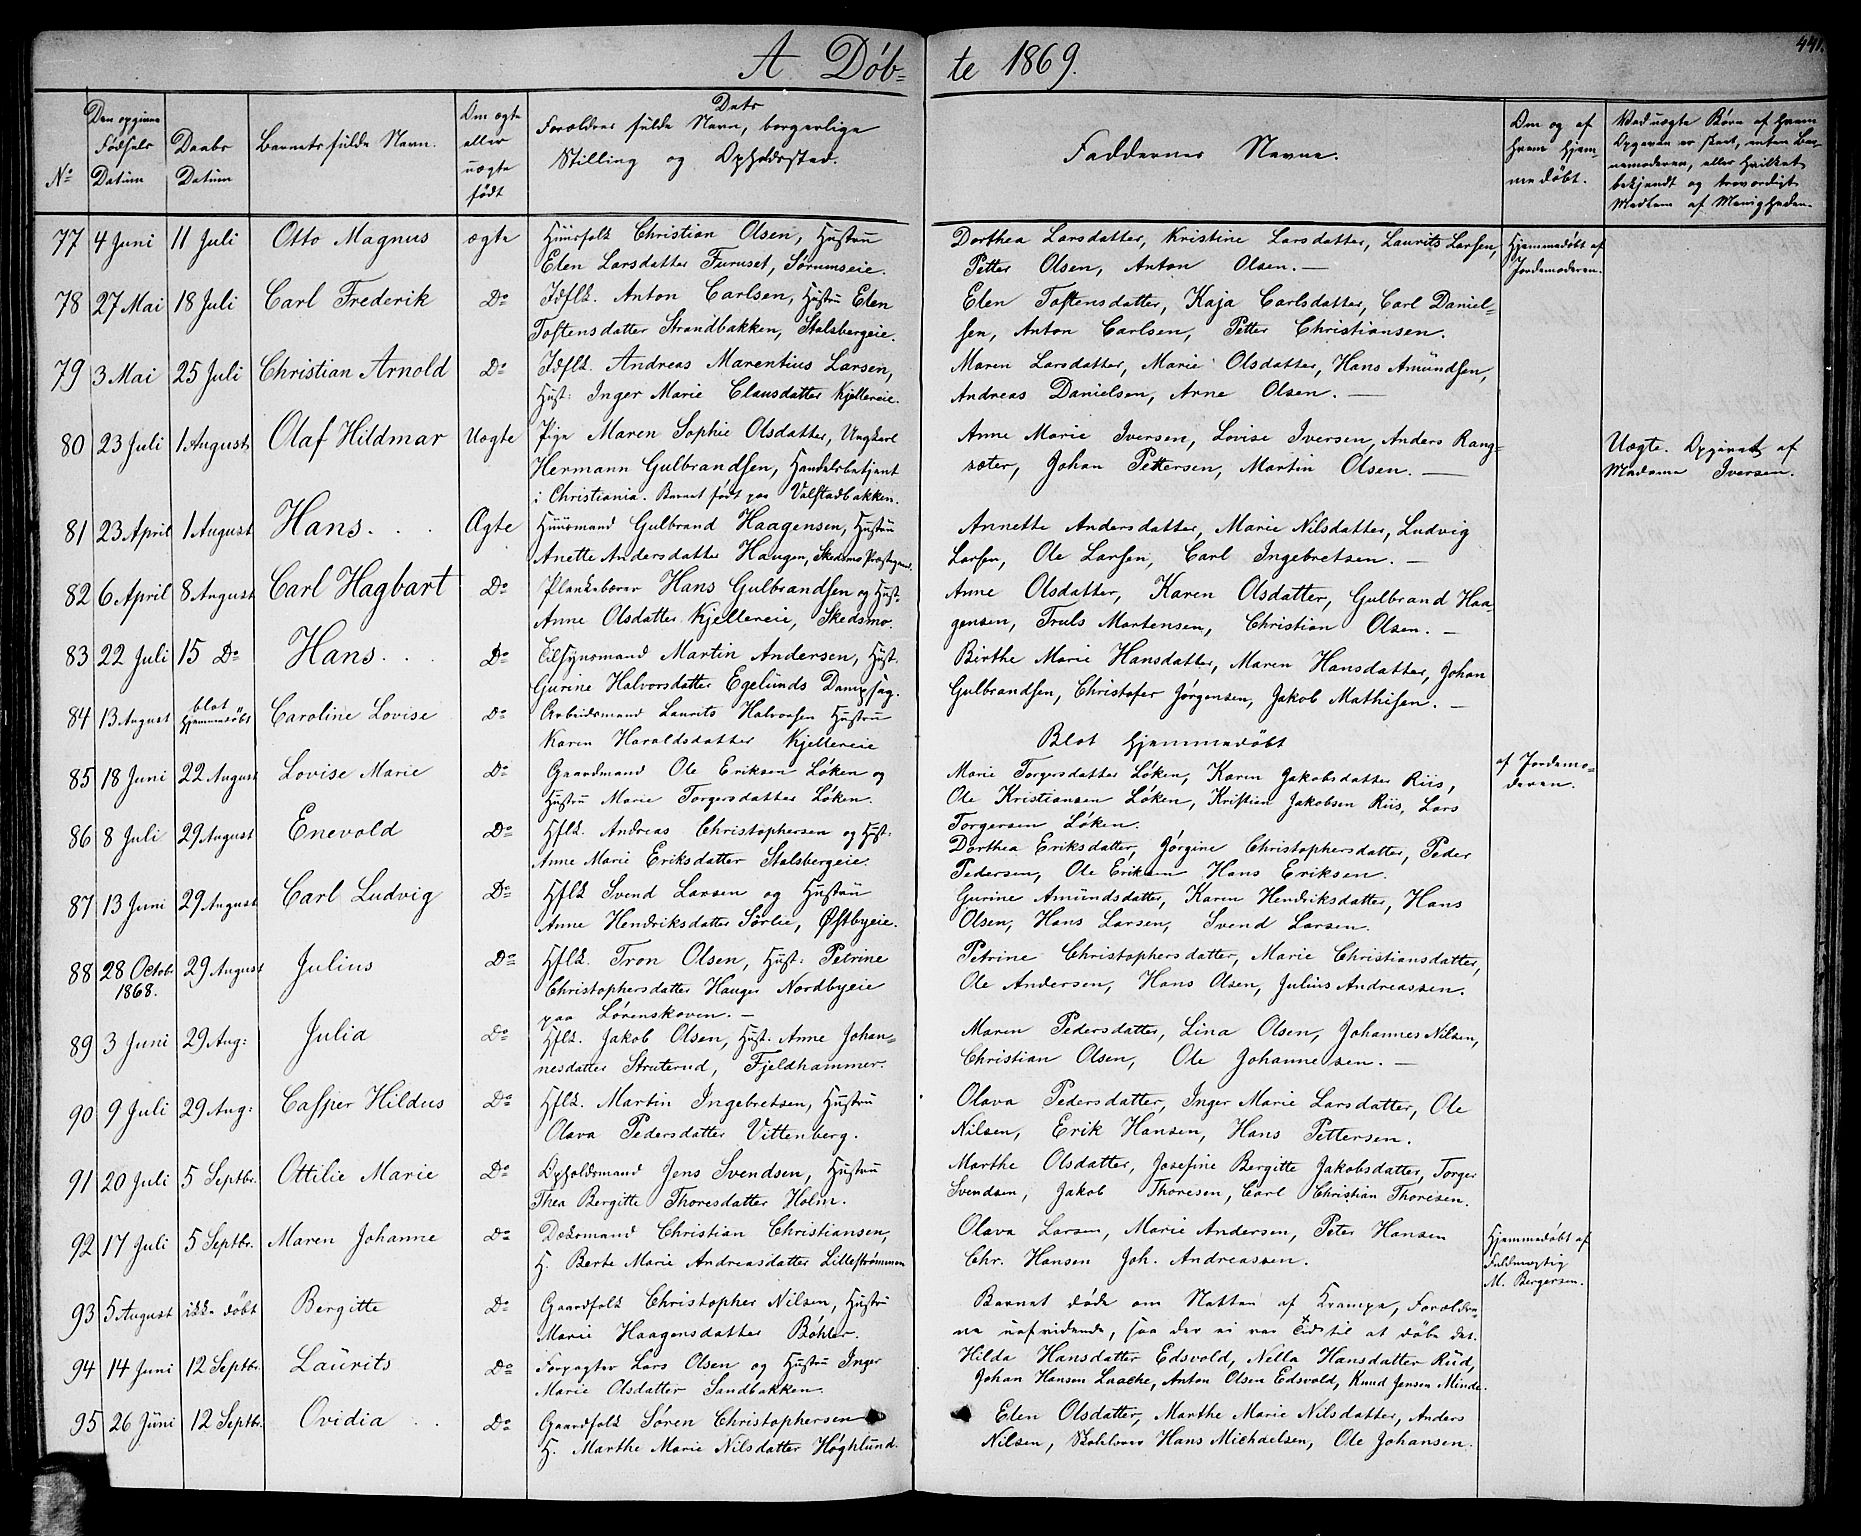 441.
A. Døb= te 1869.
No
Den opgivne Fødsels Datum
Daabs Datum
Barnets fulde Navn.
Om ægte eller uægte født
Dets Forældres fulde Navn, borgerlige Stilling og Opholdssted.
Faddernes Navne.
Om og af hvem hjemmedøbt.
Ved uægte Børn af hvem Opgaven er skeet, enten Barnemoderen, eller hvilket bekjendt og troværdigt Medlem af Menigheden.
77 4 Juni 11 Juli Otto Magnus ægte Huusfolk Christian Olsen, Hustru Dorthea Larsdatter, Kristine Larsdatter, Laurits Larsen, Hjemmedøbt af
Elen Larsdatter Furuset, Sørumseie. Petter Olsen, Anton Olsen. — Jordemoderen.
78 27 Mai 18 Juli Carl Frederik Do Idflk. Anton Carlsen, Hustru Elen Elen Toftensdatter, Kaja Carlsdatter, Carl Daniel=
Toftensdatter Strandbakken, Stalsbergeie. sen, Anton Carlsen, Petter Christiansen.
79 3 Mai 25 Juli Christian Arnold Do Idflk. Andreas Marentius Larsen, Maren Larsdatter, Marie Olsdatter, Hans Amundsen,
Hust: Inger Marie Clausdatter Kjellereie. Andreas Danielsen, Arne Olsen. —
80 23 Juli 1 August Olaf Hildmar Uægte Pige Maren Sophie Olsdatter, Ungkarl Anne Marie Iversen, Lovise Iversen, Anders Rang= Uægte. Opgivet af
Hermann Gulbrandsen, Handelsbetjent sæter, Johan Pettersen, Martin Olsen. — Madame Iversen.
i Christiania. Barnet født paa Valstadbakken.
81 23 April 1 August Hans. Ægte Huusmand Gulbrand Haagensen, Hustru Annette Andersdatter, Marie Nilsdatter, Ludvig
Anette Andersdatter Haugen, Skedsmo Præstegaard. Larsen, Ole Larsen, Carl Ingebretsen. —
82 6 April 8 August Carl Hagbart Do Plankebærer Hans Gulbrandsen og Hust: Anne Olsdatter, Karen Olsdatter, Gulbrand Haa
Anne Olsdatter Kjellereie, Skedsmo. gensen, Truls Mortensen, Christian Olsen. —
83 22 Juli 15 Do Hans. Do Tilsynsmand Martin Andersen, Hust: Birthe Marie Hansdatter, Maren Hansdatter, Johan
Gurine Halvorsdatter Egelunds Dampsag. Gulbrandsen, Christofer Jørgensen, Jakob Mathisen. —
84 13 August blot hjemmedøbt Caroline Lovise Do Arbeidsmand Laurits Halvorsen Hustru
Karen Haraldsdatter Kjellereie Blot hjemmedøbt
85 18 Juni 22 August Lovise Marie Do Gaardmand Ole Eriksen Løken og Marie Torgersdatter Løken, Karen Jakobsdatter Riis, af Jordemo=
Hustru Marie Torgersdatter Løken. Ole Kristiansen Løken, Kristien Jakobsen Riis, Lars deren.
Torgersen Løken.
86 8 Juli 29 August Enevold Do Hflk. Andreas Christophersen og Hust: Dorthea Eriksdatter, Jørgine Christophersdatter, Peder
Anne Marie Eriksdatter Stalsbergeie. Pedersen, Ole Eriksen Hans Eriksen.
87 13 Juni 29 August Carl Ludvig Do Hflk Svend Larsen og Hustru Gurine Amundsdatter, Karen Hendriksdatter, Hans
Anne Hendriksdatter Sørlie, Østbyeie. Olsen, Hans Larsen, Svend Larsen.
88 28 Octob. 1868. 29 August Julius Do Hflk. Tron Olsen, Hust: Petrine Petrine Christophersdatter, Marie Christiansdatter,
Christophersdatter Hauger Nordbyeie Ole Andersen, Hans Olsen, Julius Andreassen.
paa Lørenskoven. —
89 3 Juni 29 Aug: Julia Do Hflk. Jakob Olsen, Hust. Anne Johan= Maren Pedersdatter, Lina Olsen, Johannes Nilsen,
nesdatter Struterud, Fjeldhammer. Christian Olsen, Ole Johannesen. —
90 9 Juli 29 Aug: Casper Hildus Do Hflk. Martin Ingebretsen, Hustru Olava Pedersdatter, Inger Marie Larsdatter, Ole
Olava Pedersdatter Vittenberg. Nilsen, Erik Hansen, Hans Pettersen.
91 20 Juli 5 Septbr. Ottilie Marie Do Opholdsmand Jens Svendsen, Hustru Marthe Olsdatter, Josefine Bergitte Jakobsdatter, Torger
Thea Bergitte Thoresdatter Holm. Svendsen, Jakob Thoresen, Carl Christian Thoresen.
92 17 Juli 5 Septbr. Maren Johanne Do Christian Christiansen, Olava Larsen, Marie Andersen, Peter Hansen Hjemmedøbt af
H. Berte Marie Andreasdatter Lillestrømmen Chr. Hansen Joh. Andreassen. Fuldmægtig
M. Bergersen.
93 5 August ikke døbt Bergitte Do Gaardfolk Christopher Nilsen, Hustru Barnet døde om Natten af Krampe, Foræld=
Marie Haagensdatter Bøhler. rene uafvidende, saa der ei var Tid til at døbe det.
94 14 Juni 12 Septbr. Laurits Do Forpagter Lars Olsen og Hustru Inger Hilda Hansdatter Edsvold, Nella Hansdatter Rud,
Marie Olsdatter Sandbakken. Johan Hansen Laache, Anton Olsen Edsvold, Knud Jensen Minde.
95 26 Juni 12 Septbr. Ovidia Do Gaardfolk Søren Christophersen Elen Olsdatter, Marthe Marie Nilsdatter, Anders
H. Marthe Marie Nilsdatter Høghlund. Nilsen, Skolelærer Hans Michaelsen, Ole Johansen.